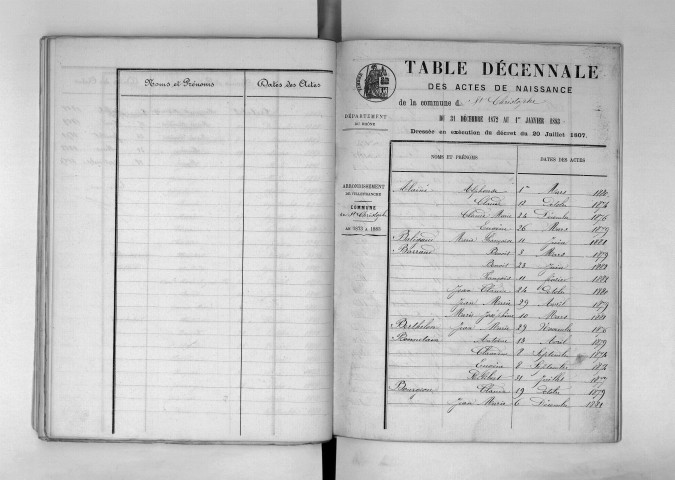 Noms et Prénoms
Dates des Actes
TABLE DÉCENNALE
DES ACTES DE NAISSANCE
de la commune d. St Christophe
DU 31 DÉCEMBRE 1872 AU 1er JANVIER 1883
Dressée en exécution du décret du 20 Juillet 1807.
DÉPARTEMENT
DU RHÔNE
ARRONDISSEMENT
DE VILLEFRANCHE
COMMUNE
de St Christophe
DE 1873 A 1883
NOMS ET PRÉNOMS
DATES DES ACTES
Alphonse 1er Mars 1880
Claude 12 Octobre 1874
Claude Marie 24 Décembre 1876
Eugène 26 Mars 1879
Marie Françoise 11 Juin
Benoit 3 Mars 1879
Benoit 23 Juin
François 11 Février
Jean Claude 24 Octobre 1880
Jean Marie 29 Avril 1879
Marie Joséphine 10 Mars
Berthelon Jean Marie 29 Novembre 1876
Antoine 13 Avril 1879
8 Septembre 1874
8 Septembre 1874
31 Juillet 1877
Bourgeon Claude 19 Octobre 1879
Jean Marie 6 Décembre 1881